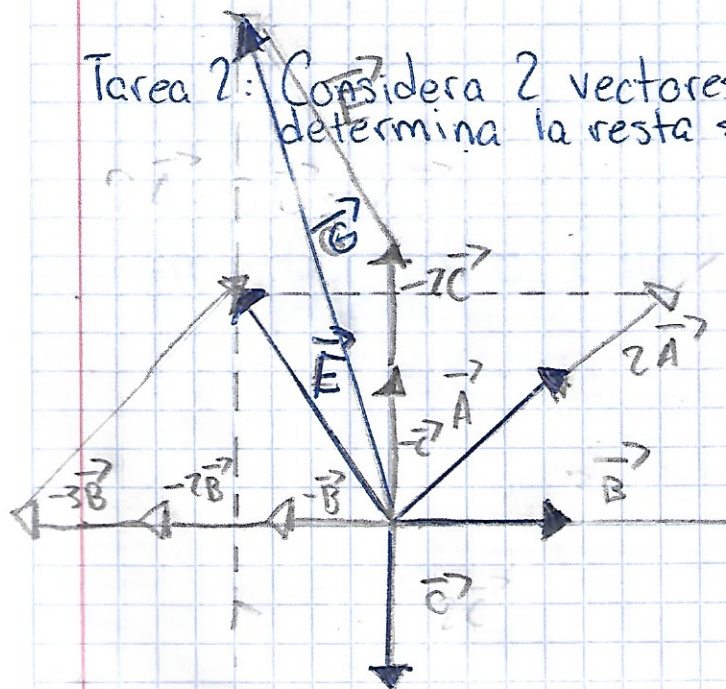 Tarea 2: Considera 2 vectores
determina la resta
F
G
-2C
E
A
2A
-C
-3B
-2B
-B
B
C